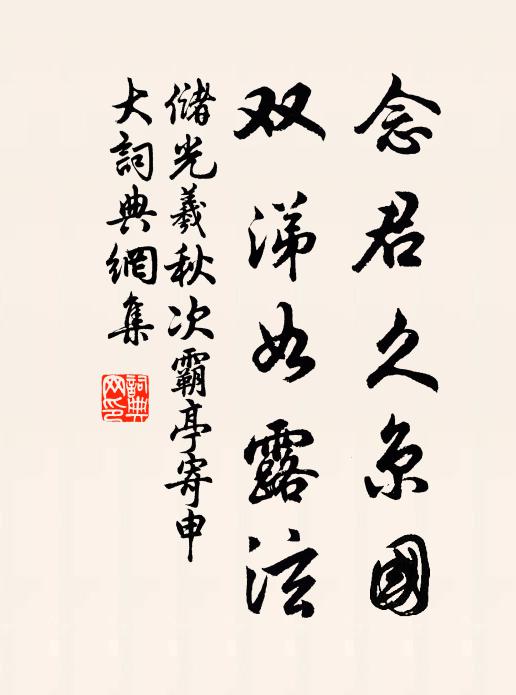 念君久京國
双涕如露泫
儲光羲秋次霸亭寄申
大詞典網集
詞典網印